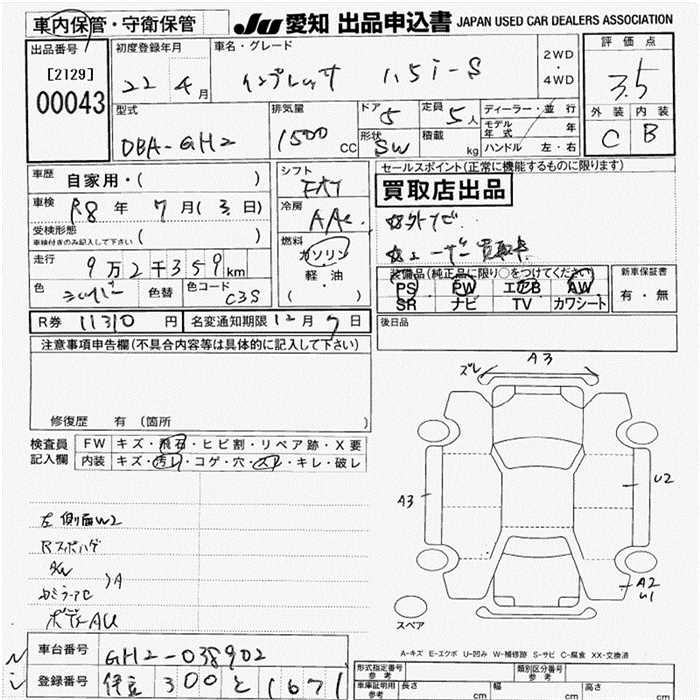 車内保管・守衛保管
JU 愛知 出品申込書 JAPAN USED CAR DEALERS ASSOCIATION
出品番号
[2129]
00043
初度登録年月
22年4月
車名・グレード
インプレッサ 1.5i-S
2WD
・
4WD
評価点
3.5
外装 内装
C B
型式
DBA-GH2
排気量
1500 CC
ドア 5
形状 SW
定員 5人
積載 kg
ディーラー・並行
モデル年式 年
ハンドル 左・右
車歴 自家用・( )
車検 R8年7月(3日)
受検形態 ( )
車検付きのみ記入して下さい
走行 9万2千359km
色 シルバー 色替 色コード C3S
シフト FAT
冷房 AAC
燃料
ガソリン
軽油
( ・ )
セールスポイント(正常に機能するものに限ります)
買取店出品
社外ナビ
ユーザー買取車
装備品(純正品に限り○をつけてください)
PS PW エアB AW
SR ナビ TV カワシート
新車保証書
有・無
R券 11310円 名変通知期限 12月7日
後日品
注意事項申告欄(不具合内容等は具体的に記入して下さい)
修復歴 有 (箇所 )
検査員記入欄
FW キズ・飛石・ヒビ割・リペア跡・X要
内装 キズ・汚れ・コゲ・穴・スレ・キレ・破レ
左側面W2
Rスポハゲ
A/W
カミラーC )A
ボディAU
ズレ A3
A3
U2
A2
U1
スペア
A-キズ E-エクボ U-凹み W-補修跡 S-サビ C-腐食 XX-交換済
車台番号 GH2-038902
登録番号 伊豆 300 と 1671
形式指定番号 参考
類別区分番号 参考
車庫証明用 参考 長さ cm 幅 cm 高さ cm